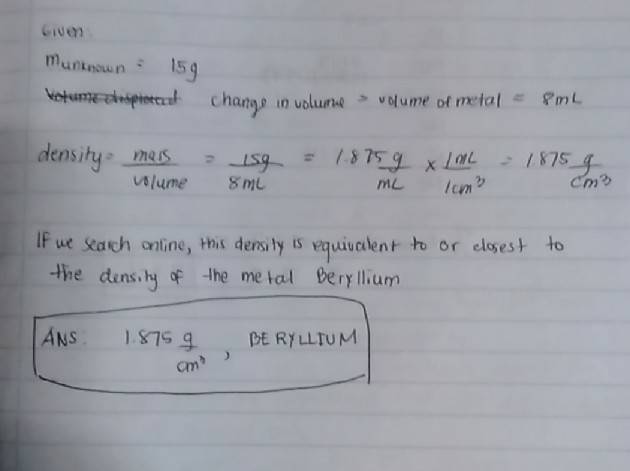 Given:
m unknown = 15g
Volume displaced change in volume = volume of metal = 8mL
density = mass/volume = 15g/8mL = 1.875 g/mL × 1mL/1cm³ = 1.875 g/cm³
If we search online, this density is equivalent to or closest to
the density of the metal Beryllium
ANS: 1.875 g/cm³, BERYLLIUM